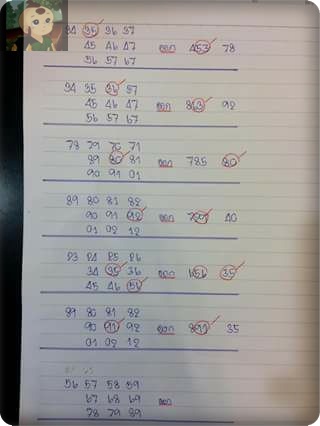 34 35 36 37
45 46 47 ออก 453 78
56 57 67
34 35 36 37
45 46 47 ออก 92
56 57 67
78 79 70 71
89 80 81 ออก 785 80
90 91 01
89 80 81 82
90 91 92 ออก 40
01 02 12
23 24 25 26
34 35 36 ออก 656 35
45 46 56
89 80 81 82
90 91 92 ออก 891 35
01 02 12
56 57 58 59
67 68 69 ออก
78 79 89